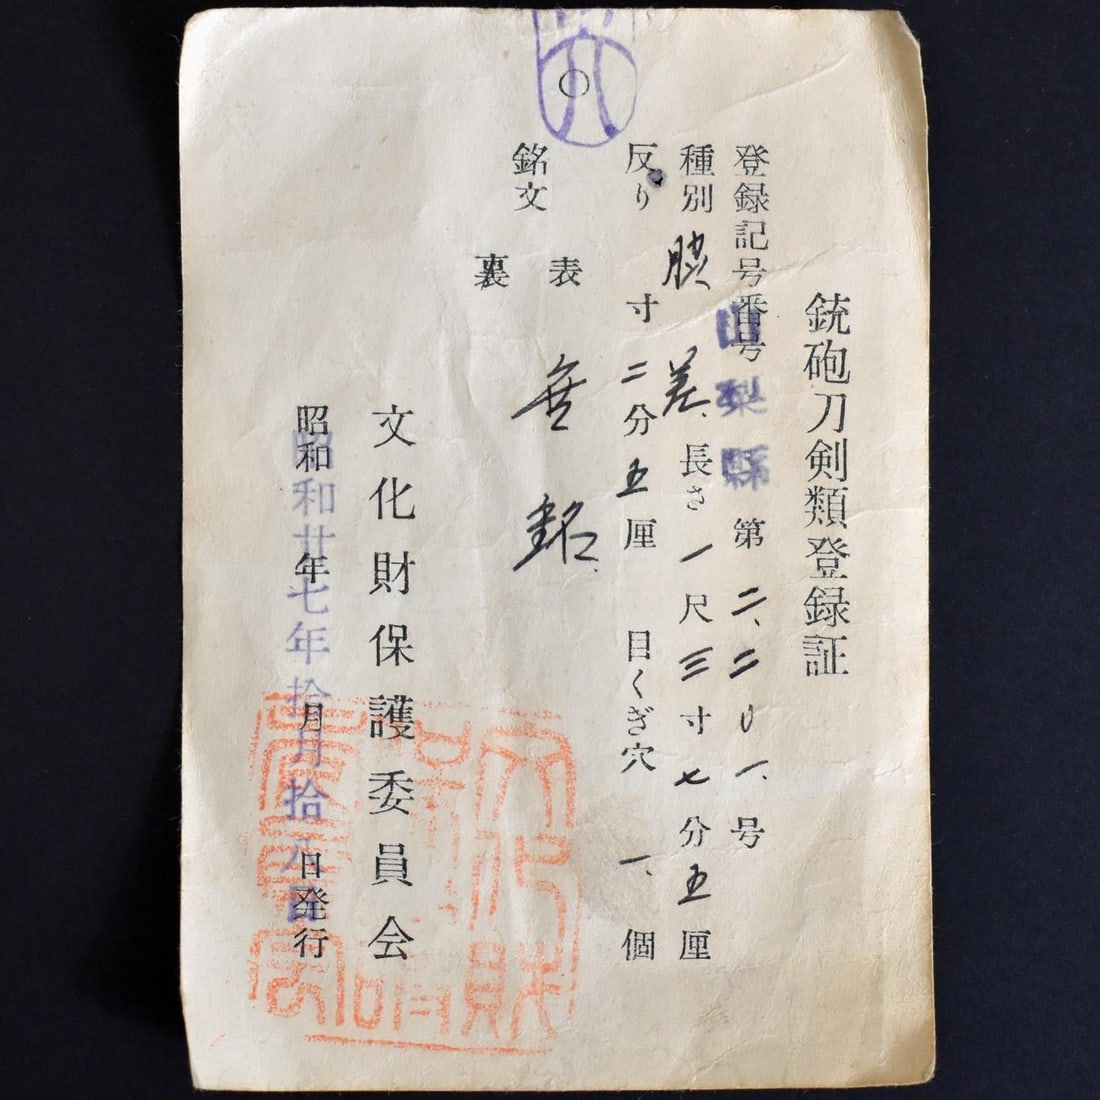 銃砲刀剣類登録証
登録記号番号 山梨縣 第二、二〇一、号
種別 脇差、 長さ 一尺三寸七分五厘
反り 寸二分五厘 目くぎ穴 一、個
銘文
表
裏
無銘
文化財保護委員会
昭和 年 月 日発行
昭和廿七年拾月拾八日